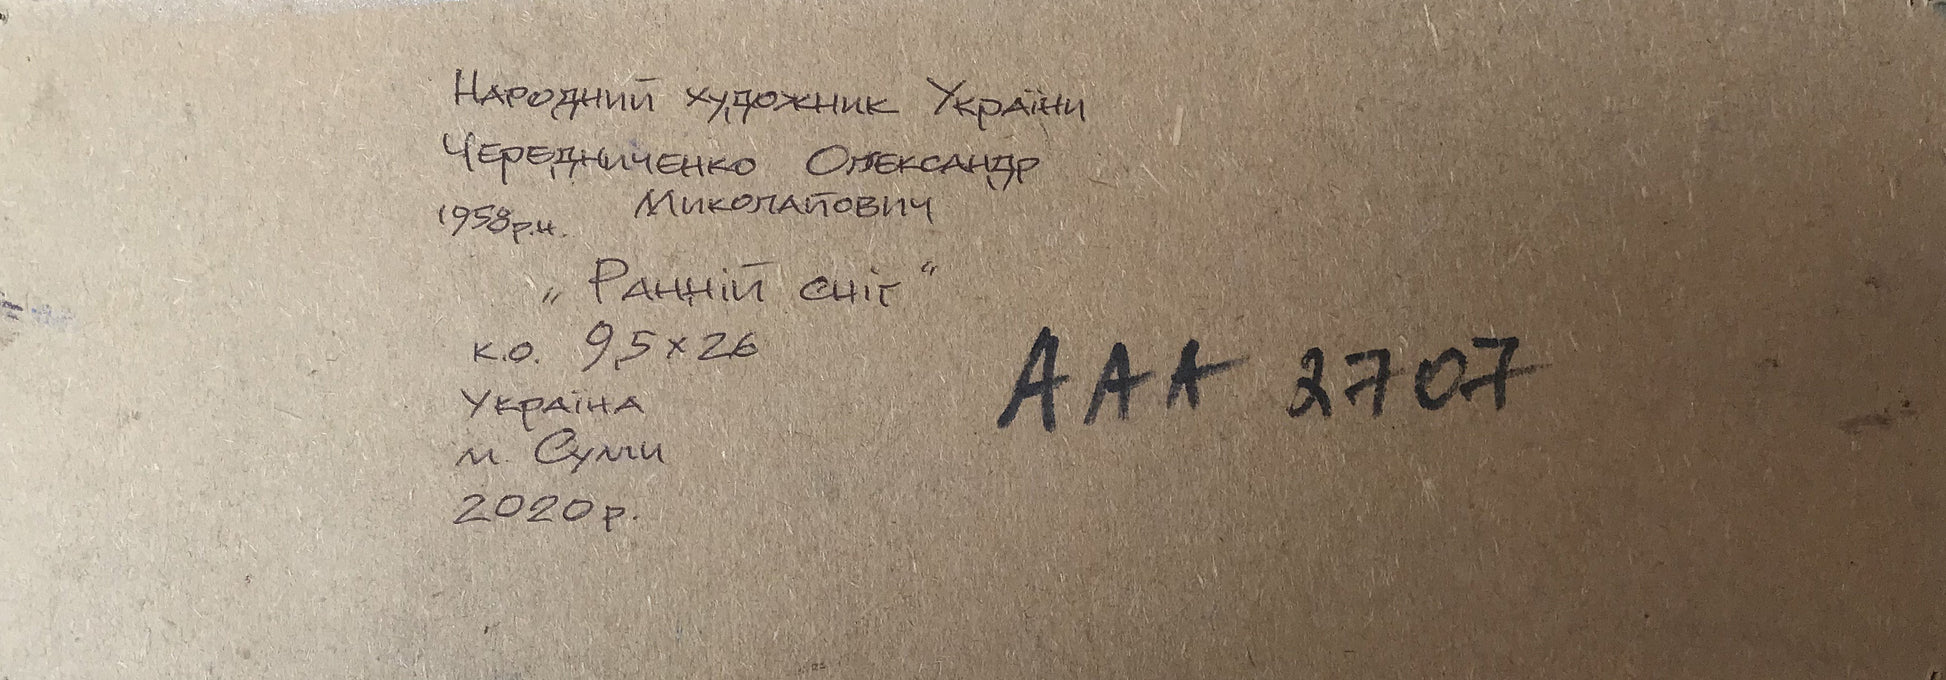 Народний художник України
Чередниченко Олександр
Миколайович
1958 р.н.
„Ранній сніг“
к.о. 9,5 х 26
Україна
м. Суми
2020 р.
ААА 2707